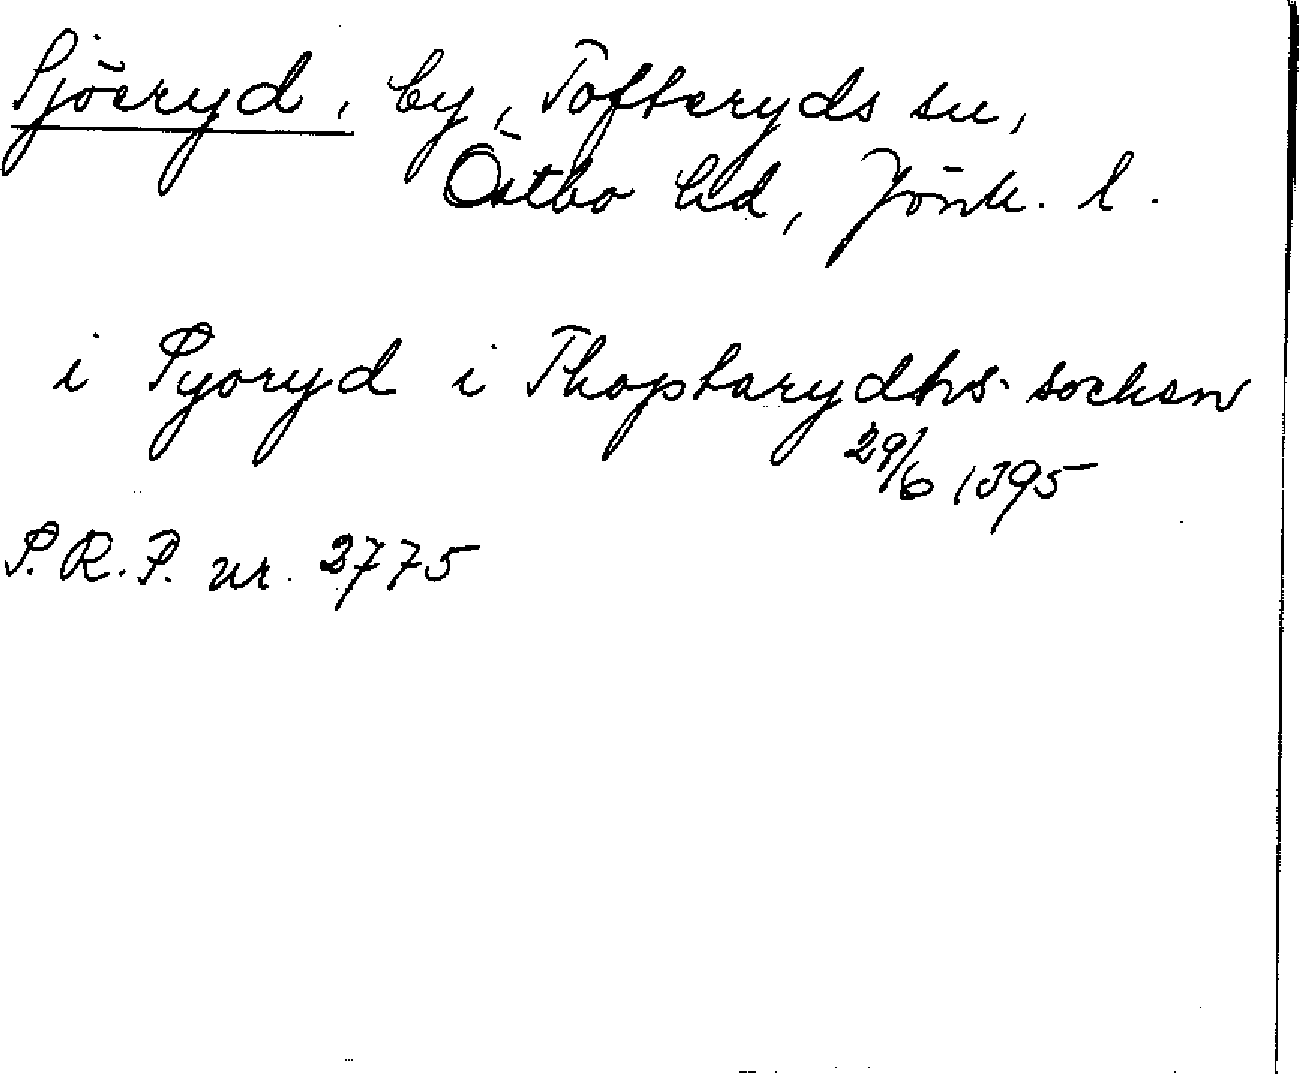 Pjöeryd, by, Tofteryds sn,
Östbo hd, Jönk. l.
i Pyoryd i Thoptarydhs socken
29/6 1395
P.R.P. nr. 2775